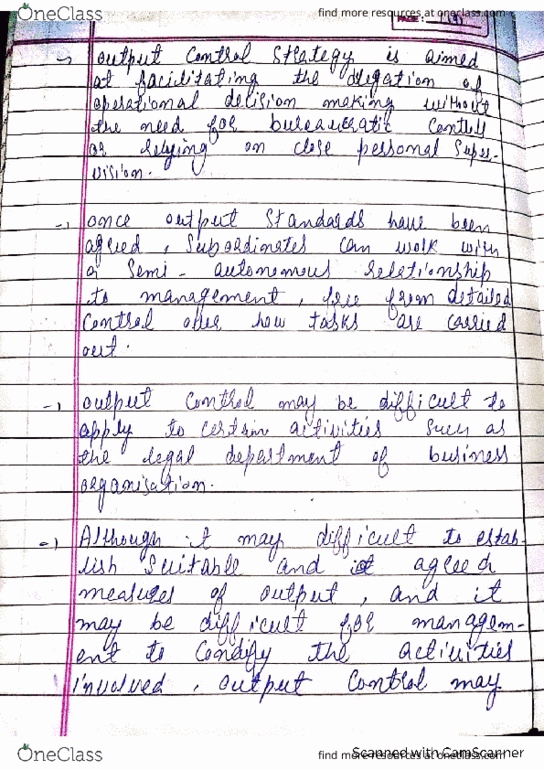 OneClass
find more resources at oneclass.com
PAGE:
→ output Control Strategy is aimed
at facilitating the delgation of
operational decision making without
the need for bureaucratic Control
or relying on close personal Super-
vision.
→ once output Standards have been
agreed, Subordinates can work with
a Semi - autonomous relationship
to management, free from detailed
Control over how tasks are carried
out.
→ output Control may be difficult to
apply to certain activities Such as
the legal department of business
organisation.
→ Although it may difficult to estab-
lish Suitable and agreed
measures of output, and it
may be difficult for managem-
ent to Condify the activities
involved, output Control may
OneClass
find more resources at oneclass.com
Scanned with CamScanner